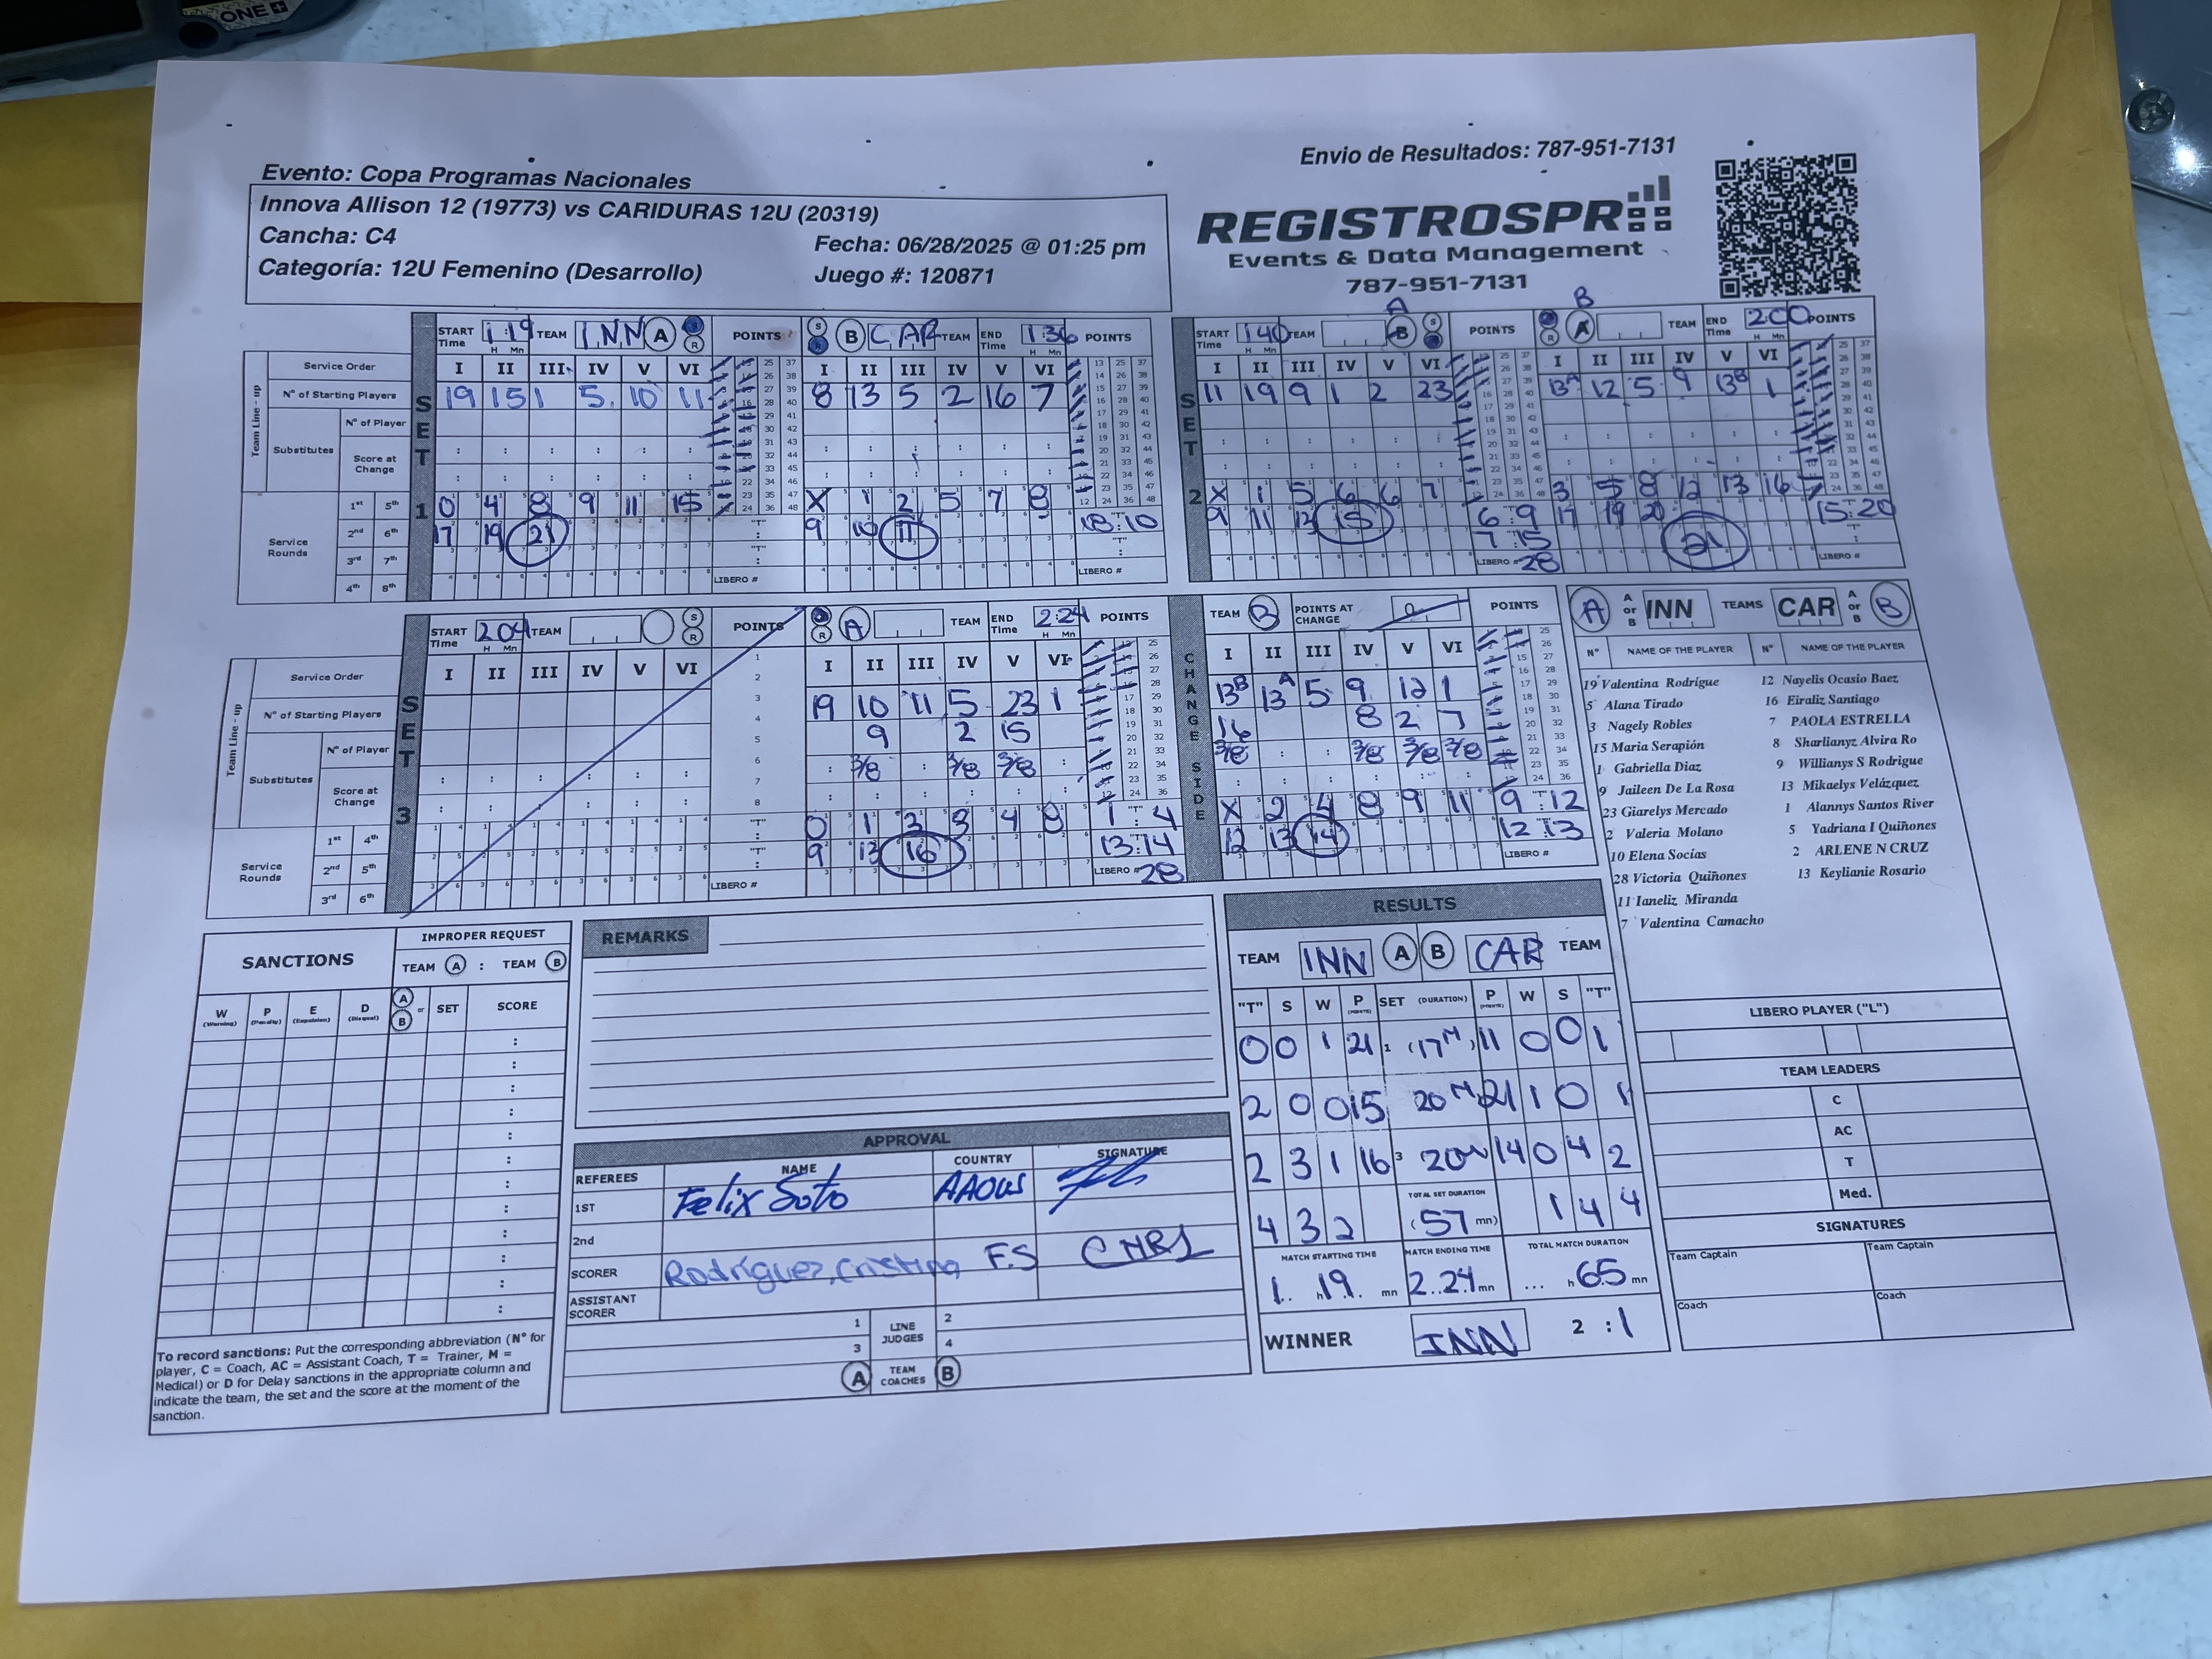 ONE+
Envio de Resultados: 787-951-7131
Evento: Copa Programas Nacionales
Innova Allison 12 (19773) vs CARIDURAS 12U (20319)
Cancha: C4
Fecha: 06/28/2025 @ 01:25 pm
Categoría: 12U Femenino (Desarrollo)
Juego #: 120871
REGISTROSPR
Events & Data Management
787-951-7131
SET 1
START Time 1:19 TEAM INN A S R POINTS
S R B CAR TEAM END Time 1:36 POINTS
Team Line-up
Service Order I II III IV V VI
I II III IV V VI
N° of Starting Players 19 15 1 5 10 11
8 13 5 2 16 7
Substitutes N° of Player
Score at Change
Service Rounds
1st 5th 0 4 8 9 11 15
X 1 2 5 7 8
2nd 6th 17 19 21 "T"
9 10 11 18:10
3rd 7th "T"
4th 8th LIBERO #
LIBERO #
SET 2
START Time 1 40 TEAM A B S R POINTS
B A TEAM END Time 2:00 POINTS
I II III IV V VI
I II III IV V VI
11 19 9 1 2 23
13A 12 5 9 13B 1
X 1 5 6 6 7
3 5 8 12 13 16
9 11 12 15 6:9
17 19 20 21 15:20
7:15
LIBERO # 28
LIBERO #
SET 3
START Time 2 04 TEAM S R POINTS
R A TEAM END Time 2:24 POINTS
CHANGE SIDE
TEAM B POINTS AT CHANGE POINTS
Team Line-up
Service Order I II III IV V VI
I II III IV V VI
I II III IV V VI
N° of Starting Players
19 10 11 5 23 1
13B 13A 5 9 12 1
Substitutes N° of Player
9 2 15
16 8 2 7
Score at Change
3/8 3/8 3/8
3/8 3/8 3/8 3/8
Service Rounds
1st 4th "T"
0 1 3 3 4 8 1:4
X 2 4 8 9 11 9:12
2nd 5th "T"
9 13 16 13:14
12 13 14 12 13
3rd 6th LIBERO #
LIBERO # 28
LIBERO #
A A or B INN TEAMS CAR A or B B
N° NAME OF THE PLAYER N° NAME OF THE PLAYER
19 Valentina Rodrígue 12 Nayelis Ocasio Baez
5 Alana Tirado 16 Eiraliz Santiago
3 Nagely Robles 7 PAOLA ESTRELLA
15 Maria Serapión 8 Sharlianyz Alvira Ro
1 Gabriella Diaz 9 Willianys S Rodrigue
9 Jaileen De La Rosa 13 Mikaelys Velázquez
23 Giarelys Mercado 1 Alannys Santos River
2 Valeria Molano 5 Yadriana I Quiñones
10 Elena Socías 2 ARLENE N CRUZ
28 Victoria Quiñones 13 Keylianie Rosario
11 Ianeliz Miranda
7 Valentina Camacho
LIBERO PLAYER ("L")
TEAM LEADERS
C
AC
T
Med.
SIGNATURES
Team Captain Team Captain
Coach Coach
SANCTIONS
IMPROPER REQUEST
TEAM A : TEAM B
W (Warning) P (Penalty) E (Expulsion) D (Disqual) A or B SET SCORE
To record sanctions: Put the corresponding abbreviation (N° for
player, C = Coach, AC = Assistant Coach, T = Trainer, M =
Medical) or D for Delay sanctions in the appropriate column and
indicate the team, the set and the score at the moment of the
sanction.
REMARKS
APPROVAL
REFEREES NAME COUNTRY SIGNATURE
1ST Felix Soto
2nd
SCORER Rodríguez, Cristina F.S
ASSISTANT SCORER
1 LINE JUDGES 2
3 4
A TEAM COACHES B
RESULTS
TEAM INN A B CAR TEAM
"T" S W P (POINTS) SET (DURATION) P (POINTS) W S "T"
0 0 1 21 1 (17M) 11 0 0 1
2 0 0 15 20M 21 1 0 1
2 3 1 16 3 20M 14 0 4 2
TOTAL SET DURATION
4 3 2 (57 mn) 1 4 4
MATCH STARTING TIME MATCH ENDING TIME TOTAL MATCH DURATION
1 h 19 mn 2..24 mn ... h 65 mn
WINNER INN 2 : 1